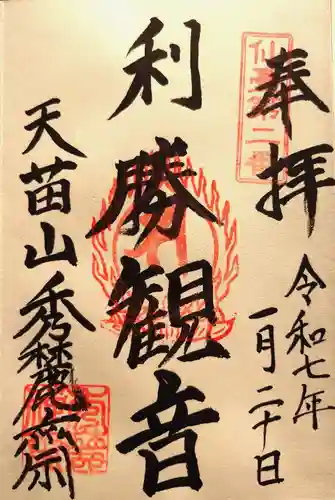 奉拝
令和七年
一月二十日
利勝観音
天苗山秀麓齋